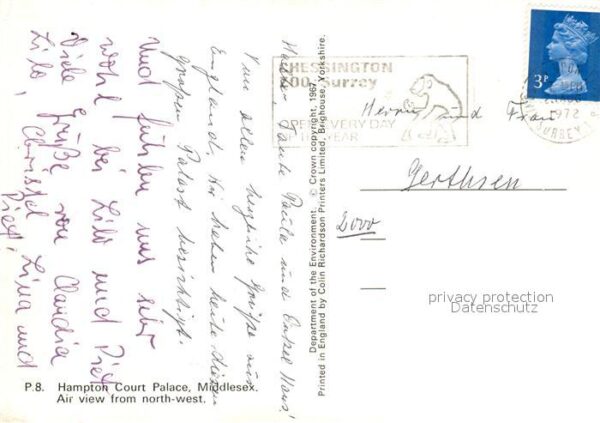 Hallo, Tante Paula und Onkel Hans!
Von allen herzliche Grüße aus
England. Wir haben heute diesen
großen Palast besichtigt.
Und fühlen uns sehr
wohl bei Lilo und Piet
Viele Grüße von Claudia
Lilo, Christel, Lina und
Piet!
P.8. Hampton Court Palace, Middlesex.
Air view from north-west.
Department of the Environment. © Crown copyright, 1967.
Printed in England by Colin Richardson Printers Limited, Brighouse, Yorkshire.
CHESSINGTON
ZOO Surrey
OPEN EVERY DAY
OF THE YEAR
3P
1972
SURREY
Herrn und Frau
Gerthsen
2000
privacy protection
Datenschutz